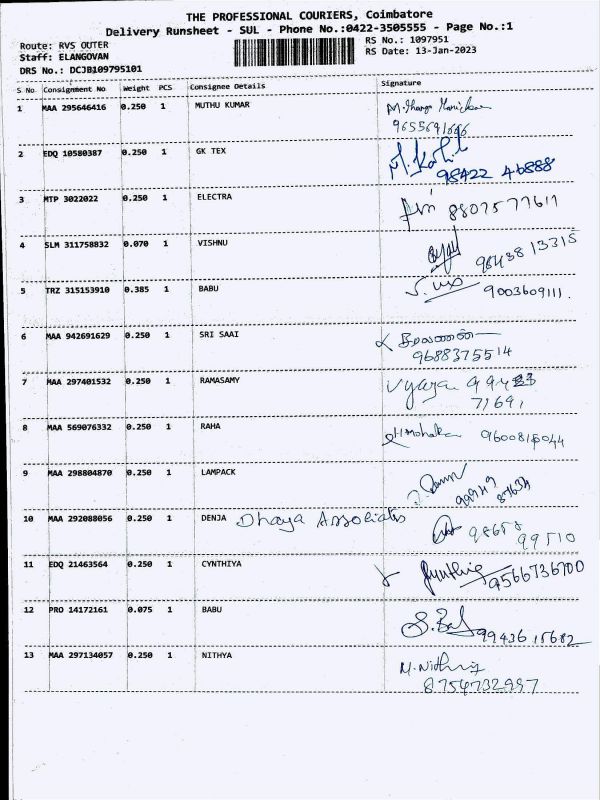 THE PROFESSIONAL COURIERS, Coimbatore
Delivery Runsheet - SUL - Phone No.:0422-3505555 - Page No.:1
Route: RVS OUTER RS No.: 1097951
Staff: ELANGOVAN RS Date: 13-Jan-2023
DRS No.: DCJB109795101
S No Consignment No Weight PCS Consignee Details Signature
1 MAA 295646416 0.250 1 MUTHU KUMAR
9655691666
2 EDQ 10580387 0.250 1 GK TEX
98422 46888
3 MTP 3022022 0.250 1 ELECTRA 8807577611
4 SLM 311758832 0.070 1 VISHNU 98438 13315
5 TRZ 315153910 0.385 1 BABU 9003609111.
6 MAA 942691629 0.250 1 SRI SAAI
9688375514
7 MAA 297401532 0.250 1 RAMASAMY
71691
8 MAA 569076332 0.250 1 RAHA
9 MAA 298804870 0.250 1 LAMPACK
10 MAA 292088056 0.250 1 DENJA Dhaya Associates
99510
11 EDQ 21463564 0.250 1 CYNTHIYA 9566736700
12 PRO 14172161 0.075 1 BABU S.Bab 99436 15682
13 MAA 297134057 0.250 1 NITHYA M.Nithya
8754732997